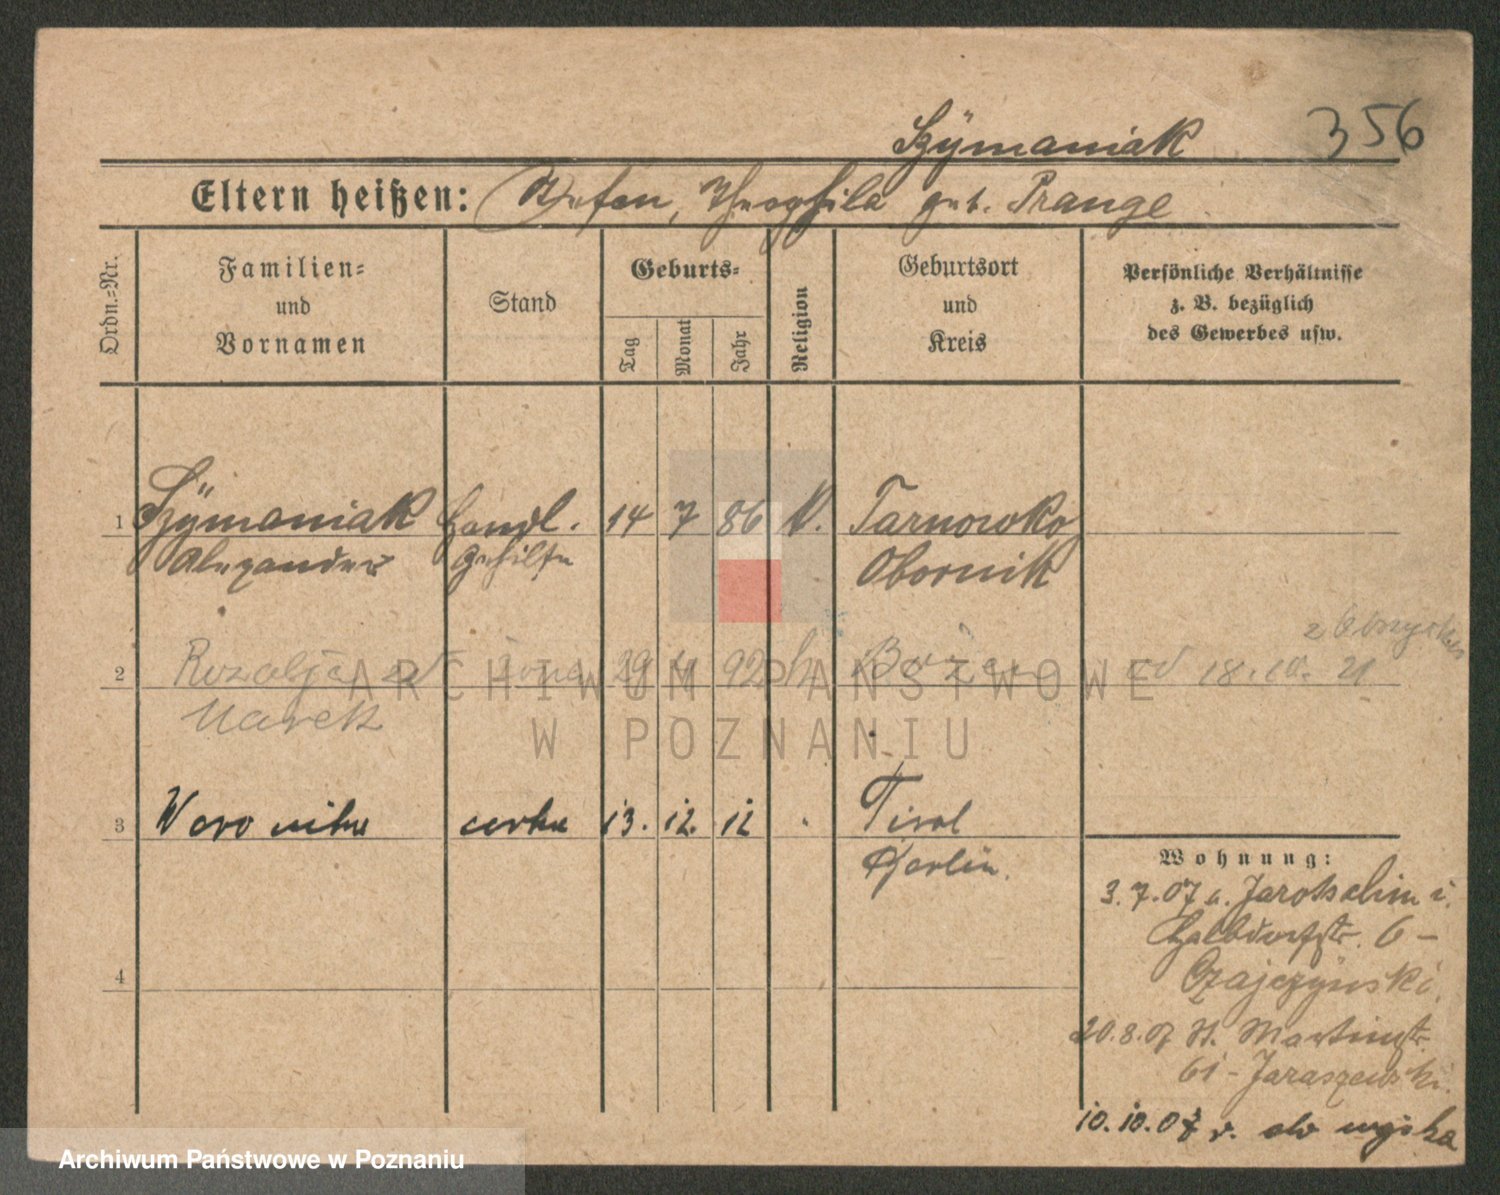 356
Szÿmaniak
Eltern heißen: Stefan, Theophila geb. Prange
Ordn.=Nr.
Familien=
und
Vornamen
Stand
Geburts=
Tag
Monat
Jahr
Religion
Geburtsort
und
Kreis
Persönliche Verhältnisse
z. B. bezüglich
des Gewerbes usw.
1 Szÿmaniak Handl. 14 7 86 K. Tarnowko
Alexander Gehilfe Obornik
2 Rozalja żona 29 92 18.10.21
Marek
3 Weronika córka 13. 12. 12 Tirol
Berlin.
4
Wohnung:
3.7.07 a. Jarotschin i.
Halbdorfstr. 6 -
Czajczyński
20.8.07 St. Martinstr.
61 - Jaraszewski.
10.10.07 v. wojska
ARCHIWUM PAŃSTWOWE
W POZNANIU
Archiwum Państwowe w Poznaniu